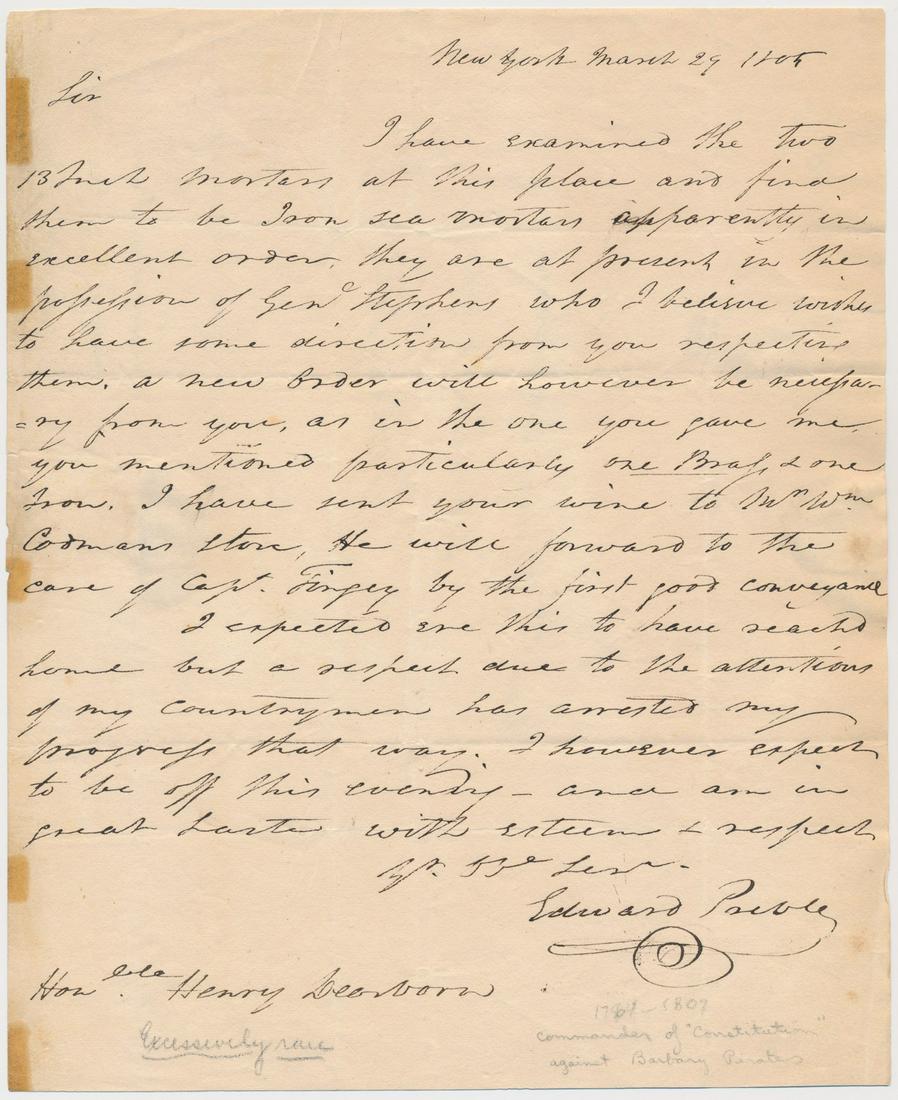 New York March 29 1805
Sir
I have examined the two
13 Inch Mortars at this place and find
them to be Iron sea mortars apparently in
excellent order. they are at present in the
possession of Genl Stephens who I believe wishes
to have some direction from you respecting
them. a new Order will however be necessa-
=ry from you, as in the one you gave me,
you mentioned particularly one Brass & one
Iron. I have sent your wine to Mr Wm
Codmans Store, He will forward to the
care of Capt. Tingey by the first good conveyance
I expected ere this to have reachd
home but a respect due to the attentions
of my Countrymen has arrested my
progress that way. I however expect
to be off this evening - and am in
great haste with esteem & respect
Yr. Servt
Edward Preble
Honble. Henry Dearborn
1761-1807
Excessively rare
commander of "Constitution"
against Barbary Pirates